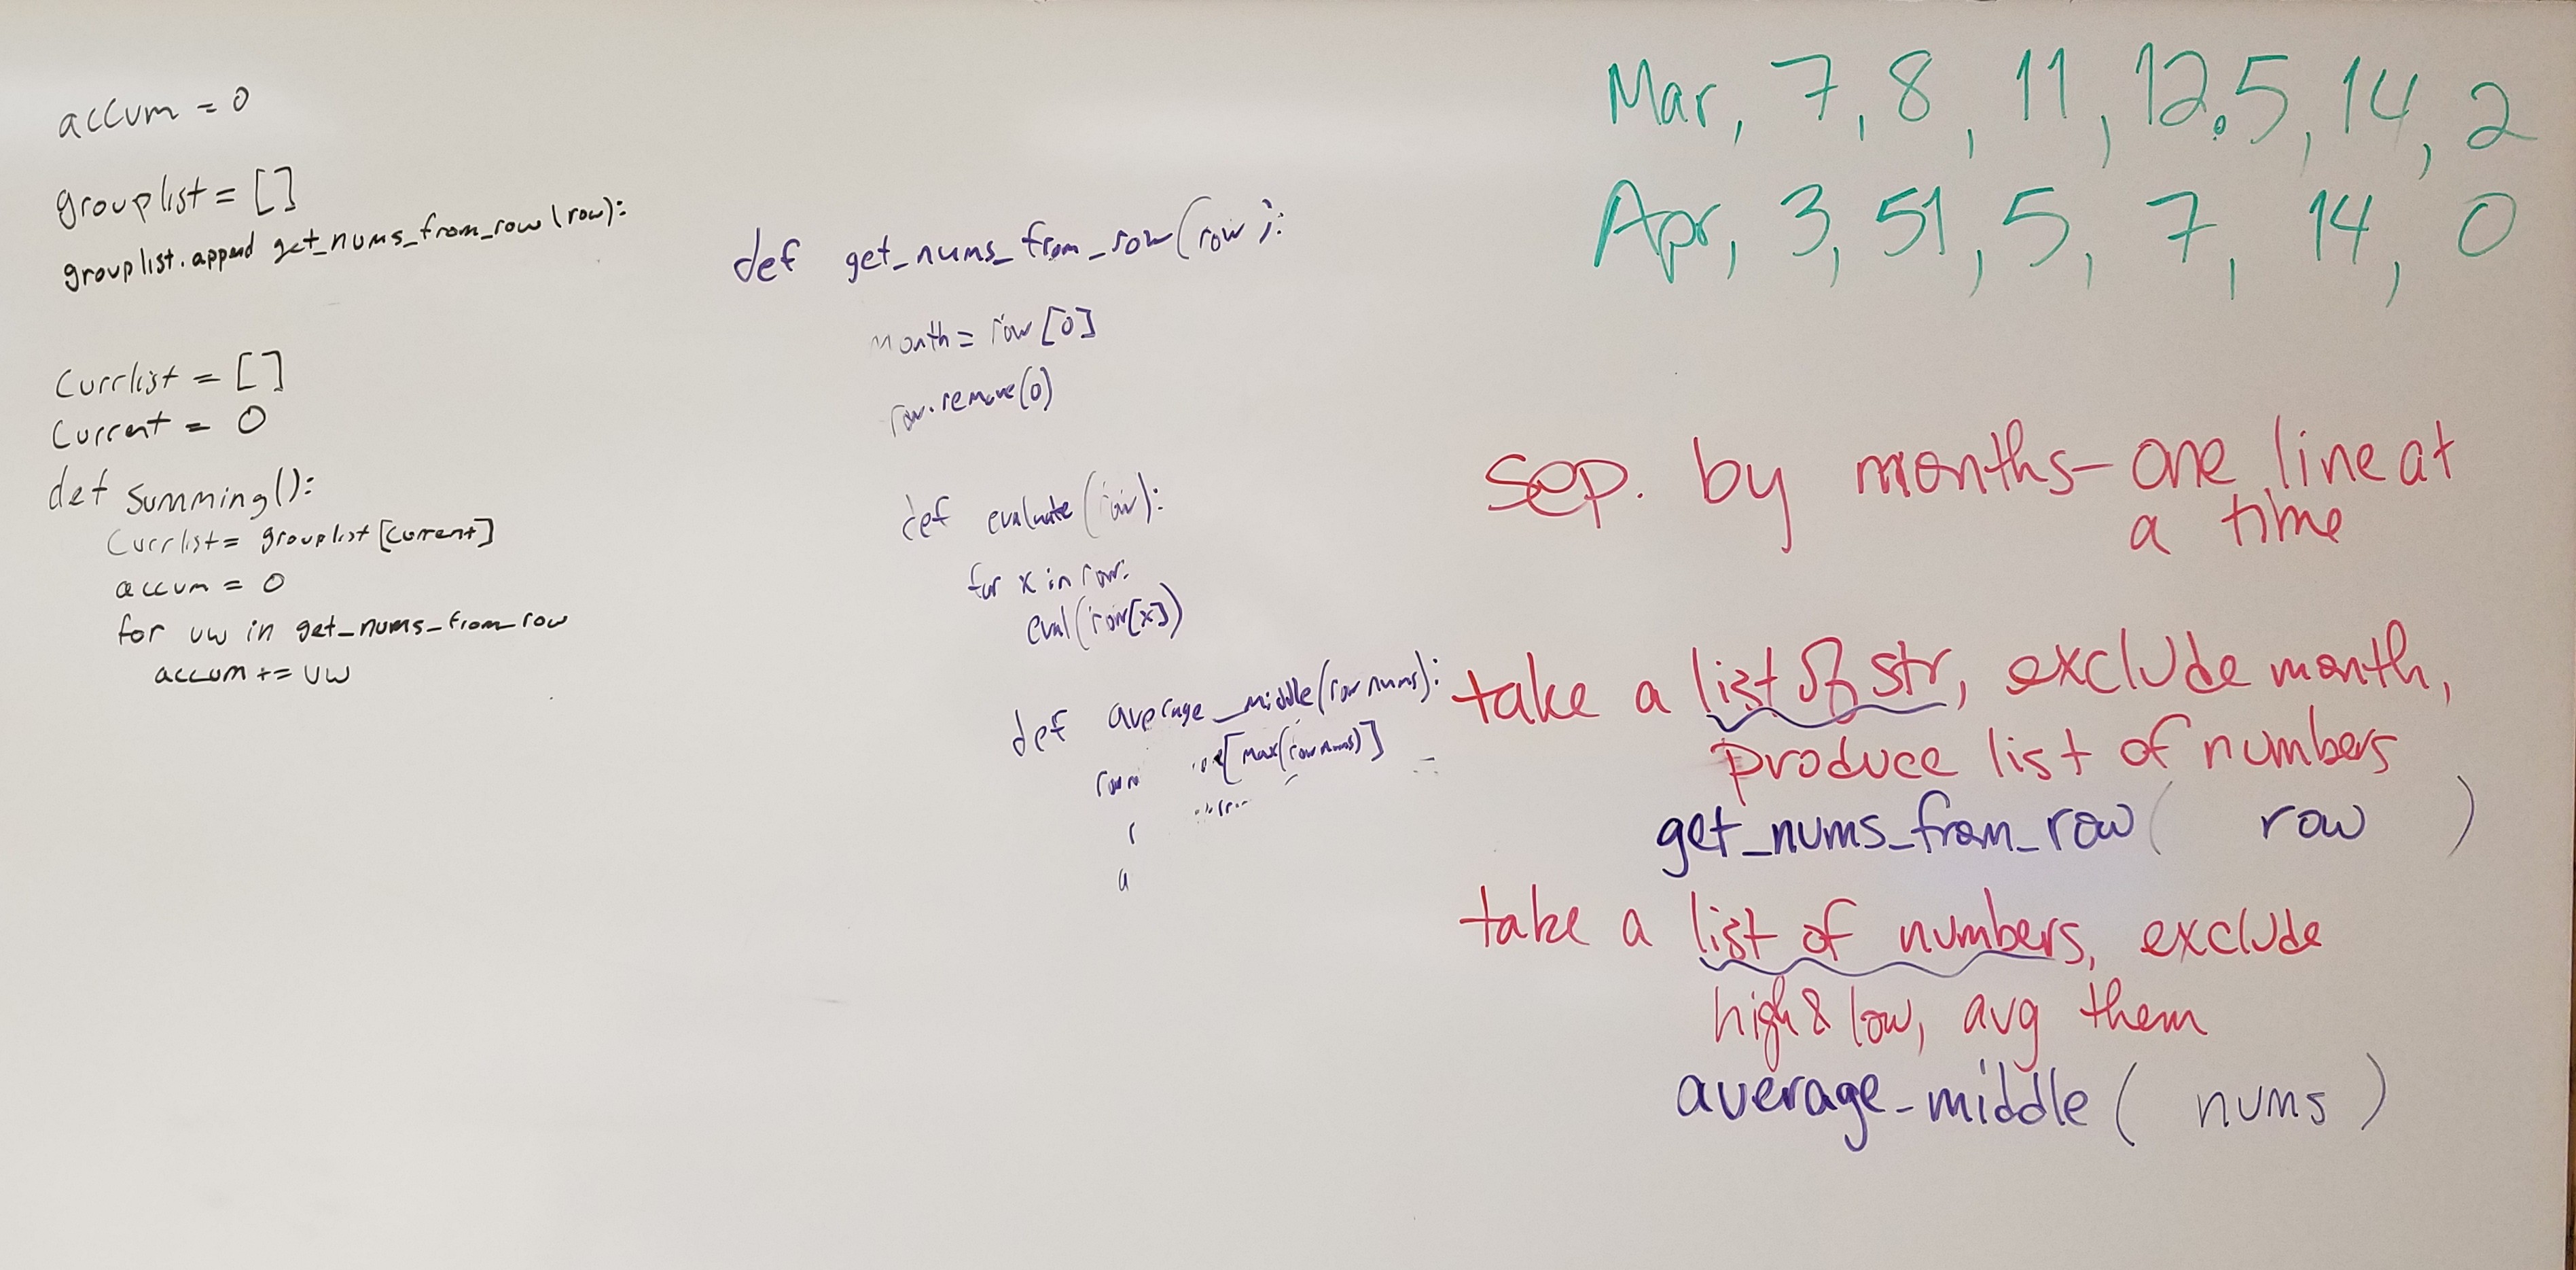 accum = 0
grouplist = []
grouplist.append get_nums_from_row(row):
Currlist = []
Current = 0
def summing():
Currlist = grouplist[current]
accum = 0
for uw in get_nums_from_row
accum += uw
def get_nums_from_row(row):
month = row[0]
row.remove(0)
def evaluate(row):
for x in row:
eval(row[x])
def average_middle(row nums):
[max(row nums)]
Mar, 7, 8, 11, 12.5, 14, 2
Apr, 3, 51, 5, 7, 14, 0
sep. by months - one line at
a time
take a list of str, exclude month,
produce list of numbers
get_nums_from_row( row )
take a list of numbers, exclude
high & low, avg them
average_middle( nums )